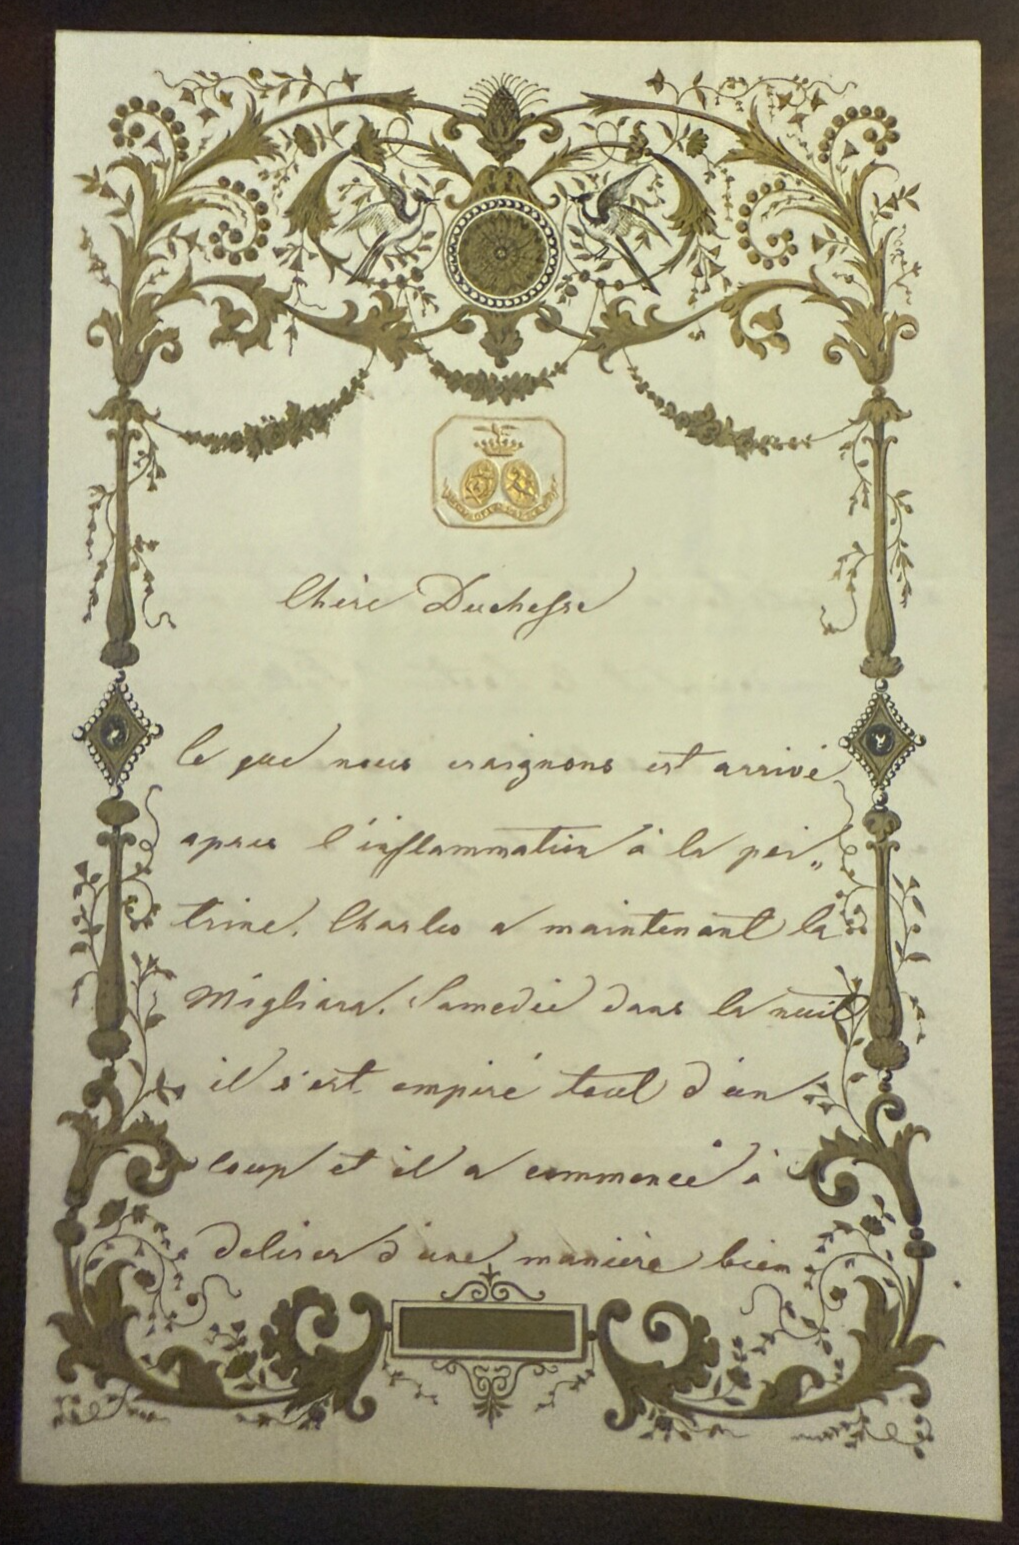 Chère Duchesse
Ce que nous craignons est arrivé
apres l'inflammation à la poi„
trine, Charles a maintenant la
Migliara. Samedie dans la nuit
il s'est empiré tout d'un
coup et il a commencé à
delirer d'une manière bien